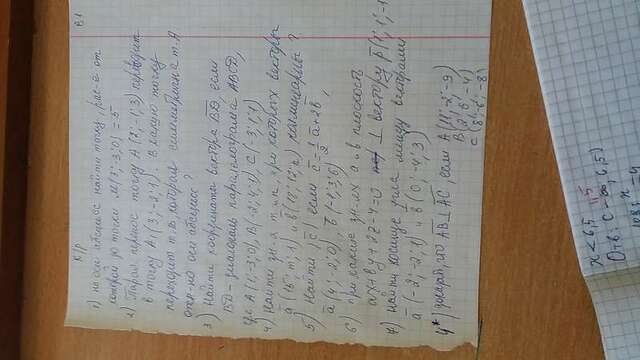 К/р В1
1) на оси абсцисс найти точку, рас-е от
которой до точки M(3;-3;0) = 5
2) Парал. перенос точку A(2;-1;3) переводит
в точку A₁(3;-2;1). В какую точку
переходит т.В, которая симметрична т.А
отн-но оси абсцисс?
3) Найти координаты вектора BD, если
BD - диагональ параллелограма ABCD,
где A(1;-3;0), B(-2;4;1), C(-3;1;1)
4) Найти зн-я m и n, при которых векторы
a(15; m; 1) и b(18; 12; n) коллинеарны?
5) Найти |c| если c = 1/2 a + 2b,
a(4;-2;0), b(-1;3;6)
6) при каких зн-ях a и b плоскость
ax+by+2z-4=0 ⊥ вектору p(1;1;-1
7) найти косинус угла между векторами
a(-2;-2;1) и b(0;-4;3)
4*) доказать, что AB⊥AC, если A(11;-2;-9)
B(2;6;-4)
C(8;-6;-8)
x < 6,5
Отв: (-∞; 6,5)